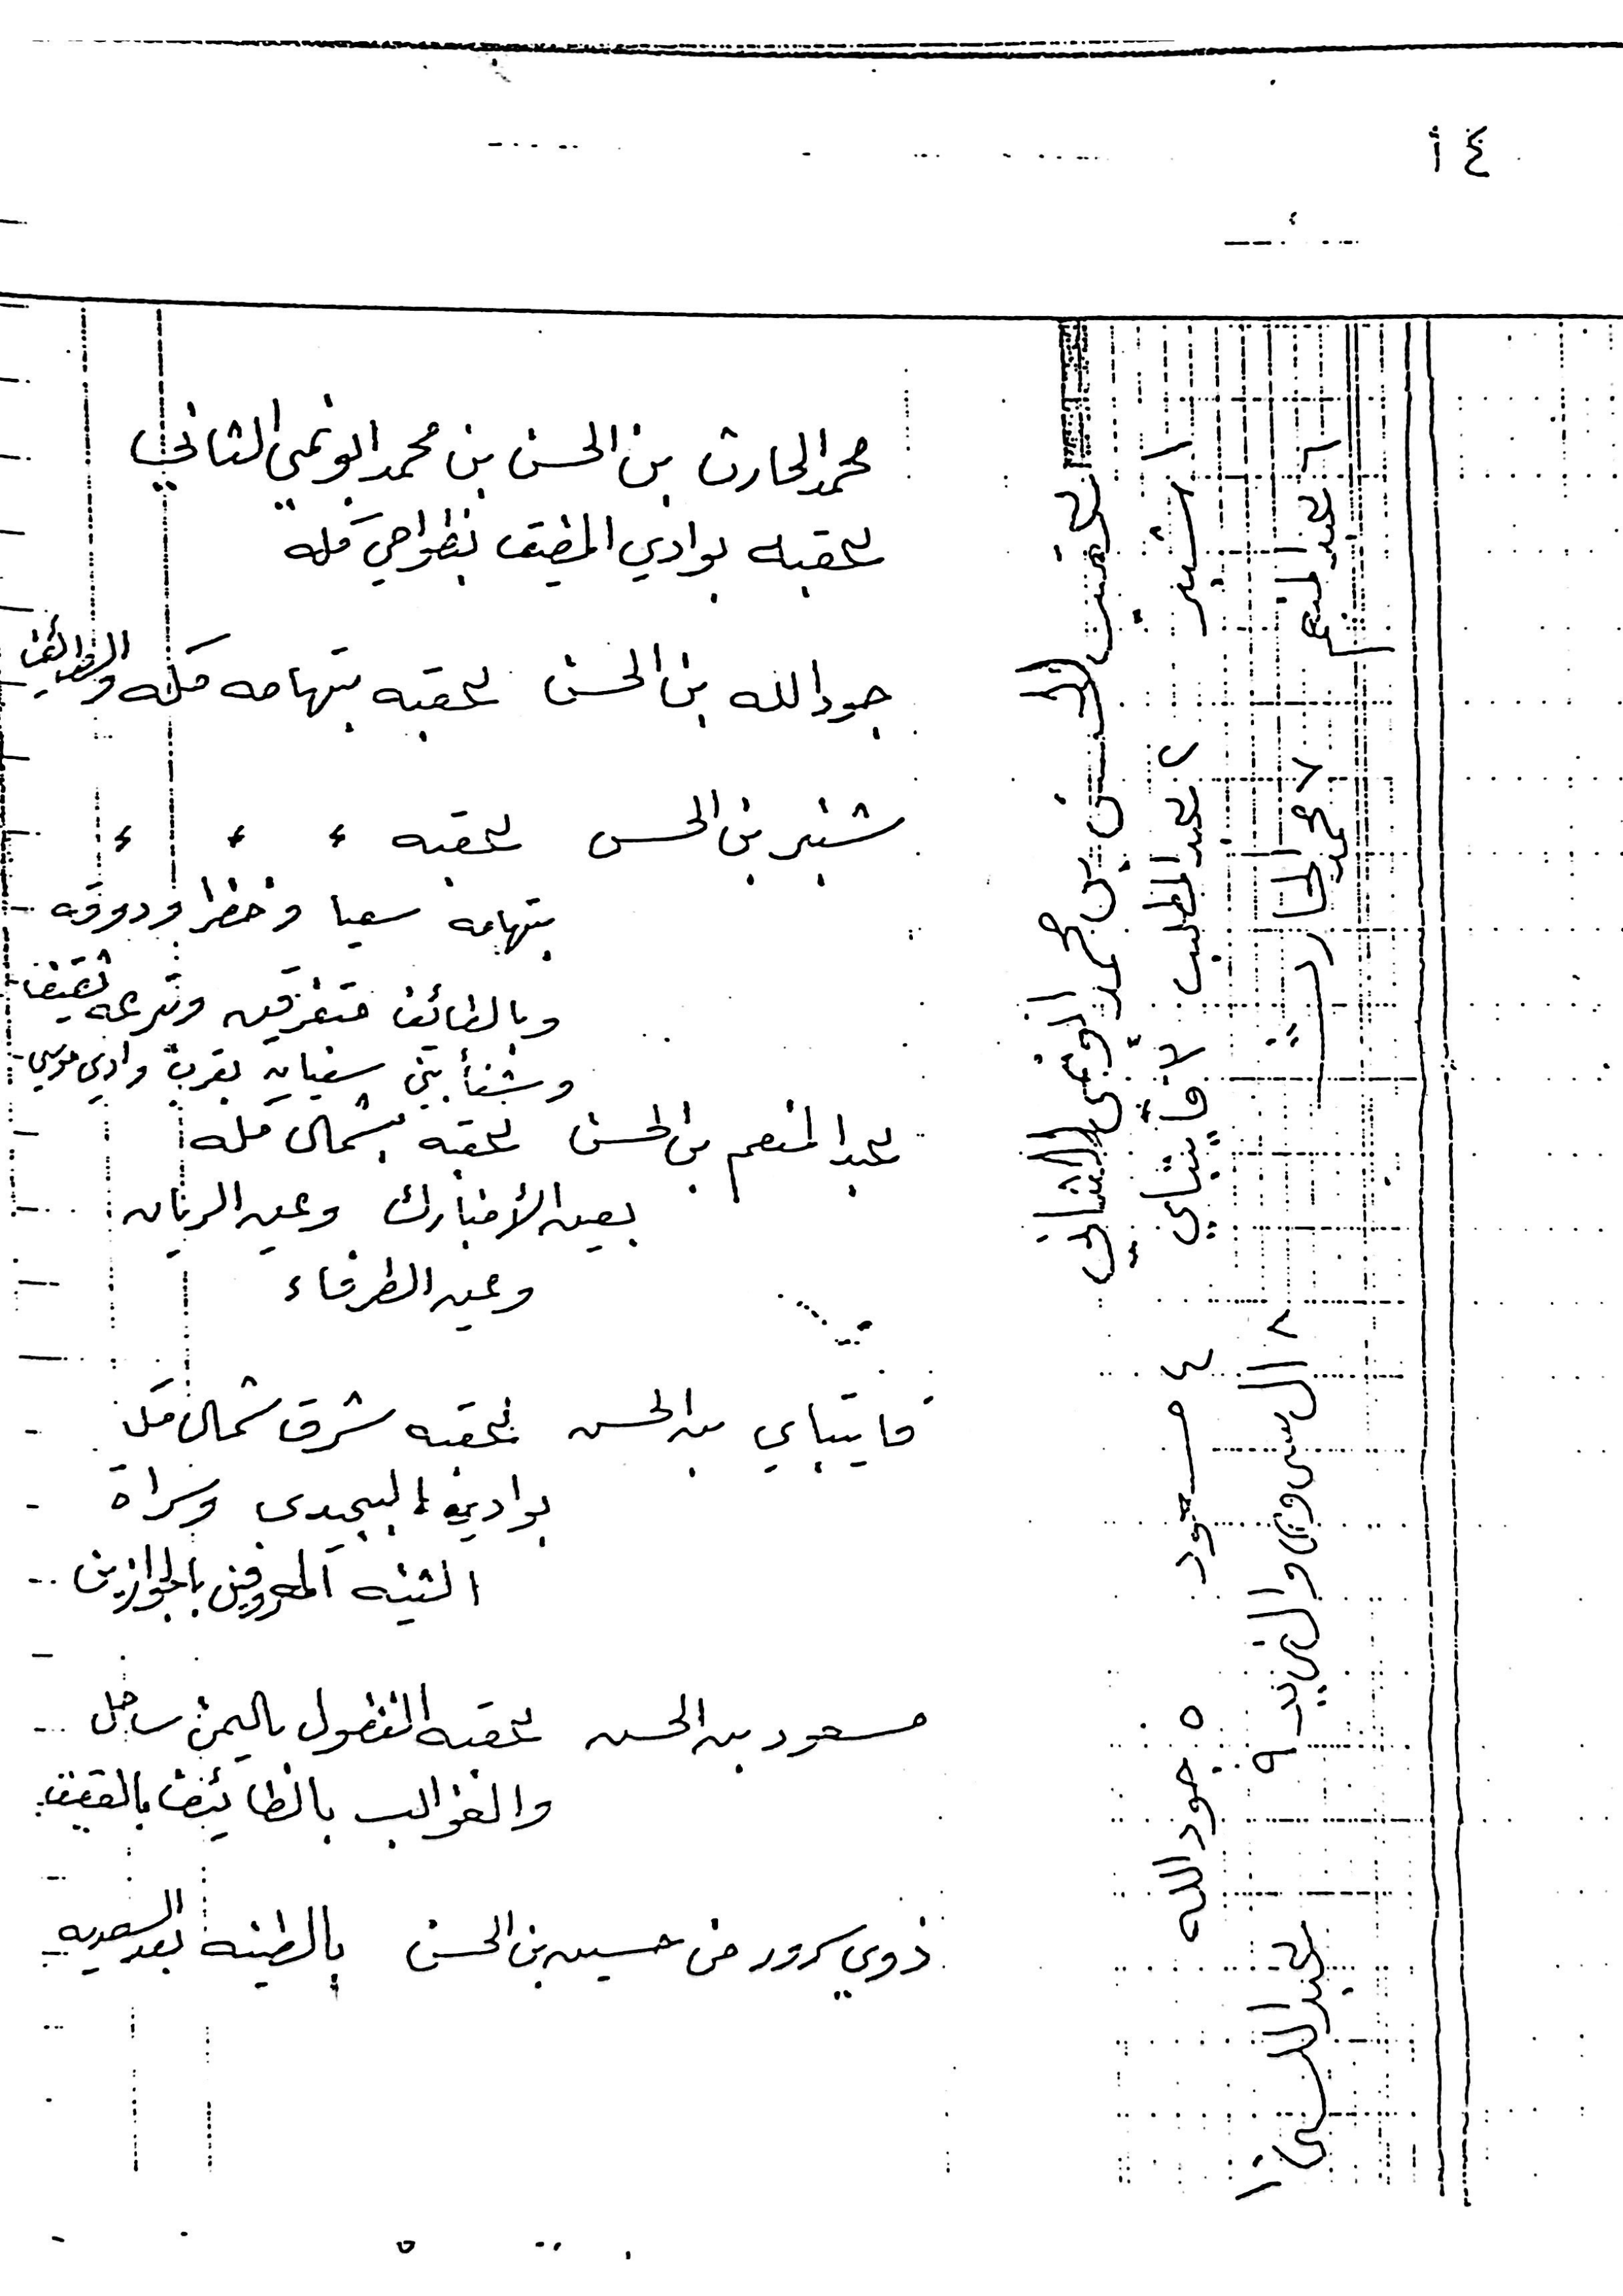 ٤ أ
عقب الحسن بن محمد ابو نمي الثاني
١ شنبر ٢ عبد المطلب ٣ قايتباي ٤ مسعود ٥ جود الله
٦ عبد المنعم ٧ محمد الحارث ٨ ٩
محمد الحارث بن الحسن بن محمد ابو نمي الثاني
عقبه بوادي المضيق بضواحي مكه
جود الله بن الحسن عقبه بتهامه مكه والطائف
شنبر بن الحسن عقبه ء ء ء
بتهامه سعيا و خضرا ودوقه
وبالطائف متفرقين وترعه ثقيف
و شفأ بني سفيان بقرب وادي
عبد المنعم بن الحسن عقبه بشمال مكه
بعين وعين الريان
وعين الطرفاء
قايتباي بن الحسن عقبه شرق شمال مكه
بوادي البجيدي وسراة
الثبته المعروفين بالجوازين
مسعود بن الحسن عقبه الفضول باليمن ساحل
والغوالب بالطائف بالعقيق
ذوي سرور من حسين بن الحسن بالطينه بعد السعديه